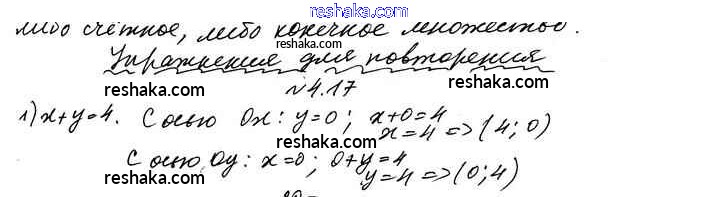 www.reshaka.com
либо счётное, либо конечное множество.
reshaka.com
Упражнения для повторения
reshaka.com
reshaka.com
№4.17
1) x+y=4. С осью Ox: y=0; x+0=4
reshaka.com
reshaka.com
x=4 => (4; 0)
С осью Oy: x=0; 0+y=4
reshaka.com
reshaka.com
y=4 => (0; 4)